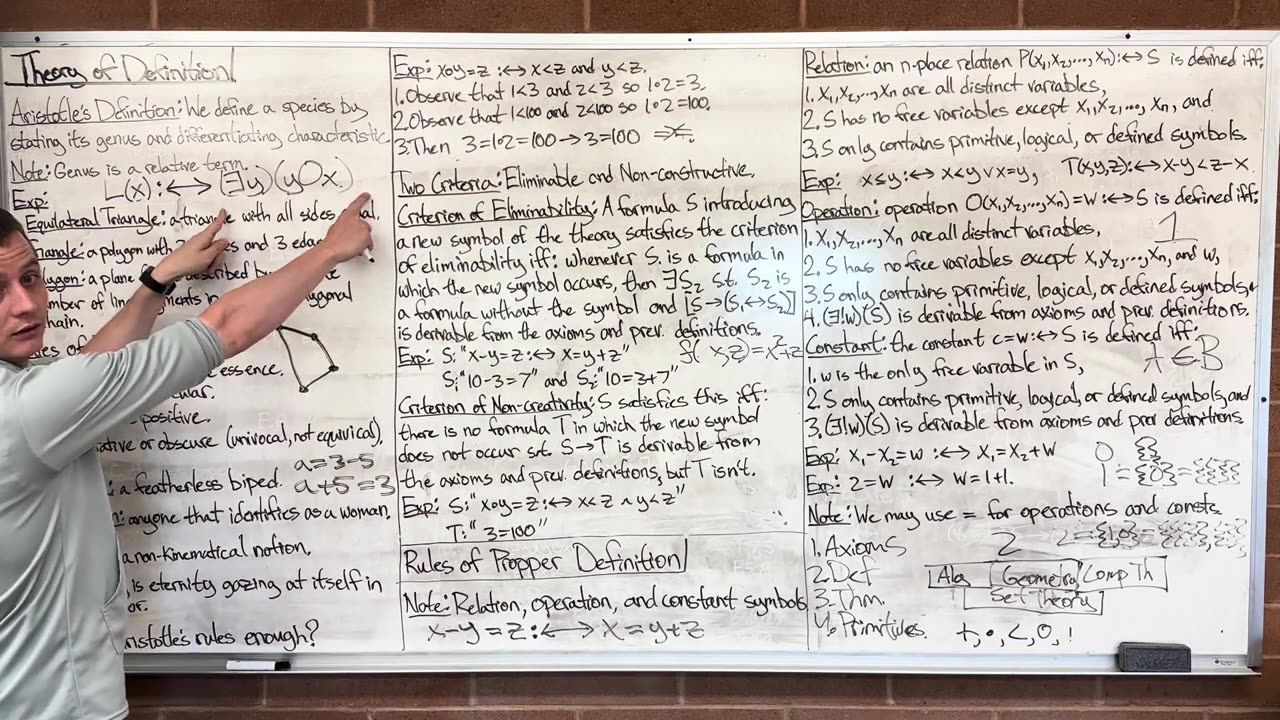 Theory of Definition
Aristotle's Definition: We define a species by
stating its genus and differentiating characteristic
Note: Genus is a relative term.
L(x) :⟷ (∃y)(yOx)
Exp:
Equilateral Triangle: a triangle with all sides
a polygon with and 3
a plane described by
of line in
hain.
of
essence.
positive.
ative or obscure (univocal, not equivical).
a=3-5
: a featherless biped.
a+5=3
: anyone that identifies as a woman.
a non-kinematical notion.
is eternity gazing at itself in
or.
ristotle's rules enough?
Exp: xoy=z :⟷ x<z and y<z.
1. Observe that 1<3 and 2<3 so 1∘2=3.
2. Observe that 1<100 and 2<100 so 1∘2=100.
3. Then 3=1∘2=100→3=100
Two Criteria: Eliminable and Non-constructive.
Criterion of Eliminability: A formula S introducing
a new symbol of the theory satisfies the criterion
of eliminability iff: whenever S₁ is a formula in
which the new symbol occurs, then ∃S₂ s.t. S₂ is
a formula without the symbol and [S→(S₁↔S₂)]
is derivable from the axioms and prev. definitions.
Exp: S: "x-y=z :⟷ x=y+z"
S₁: "10-3=7" and S₂: "10=3+7"
Criterion of Non-creativity: S satisfies this iff:
there is no formula T in which the new symbol
does not occur s.t. S→T is derivable from
the axioms and prev. definitions, but T isn't.
Exp: S: "xoy=z :⟷ x<z ∧ y<z"
T: "3=100"
Rules of Propper Definition
Note: Relation, operation, and constant symbols
x-y=z :⟷ x=y+z
Relation: an n-place relation P(x₁,x₂,...,xₙ) :⟷ S is defined iff:
1. x₁,x₂,...,xₙ are all distinct variables,
2. S has no free variables except x₁,x₂,..., xₙ, and
3. S only contains primitive, logical, or defined symbols.
Exp: x≤y :⟷ x<y ∨ x=y, T(x,y,z) :⟷ x-y<z-x.
Operation: operation O(x₁,x₂,...,xₙ)=w :⟷ S is defined iff:
1. x₁,x₂,...,xₙ are all distinct variables, 1
2. S has no free variables except x₁,x₂,...,xₙ, and w,
3. S only contains primitive, logical, or defined symbols, &
4. (∃!w)(S) is derivable from axioms and prev definitions.
Constant: the constant c=w :⟷ S is defined iff:
1. w is the only free variable in S, A∈B
2. S only contains primitive, logical, or defined symbols, and
3. (∃!w)(S) is derivable from axioms and prev definitions.
Exp: x₁-x₂=w :⟷ x₁=x₂+w
0 {}
Exp: 2=w :⟷ w=1+1.
Note: We may use = for operations and consts.
1. Axioms
2
2. Def
Alg Geometry Comp Th
3. Thm.
Set Theory
4. Primitives. +, •, <, 0, 1